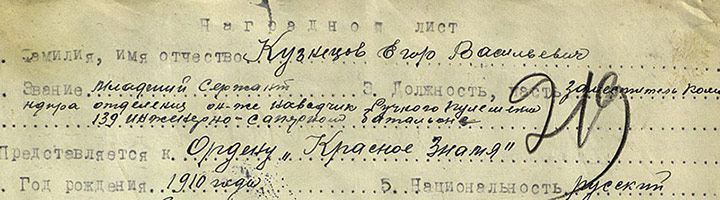 Наградной лист
. Фамилия, имя отчество Кузнецов Егор Васильевич
. Звание младший Сержант 3. Должность, часть заместитель кома
ндира отделения он-же наводчик Ручного пулемета
139 инженерно-саперного батальона
Представляется к Ордену „Красное Знамя"
. Год рождения 1910 года 5. Национальность русский